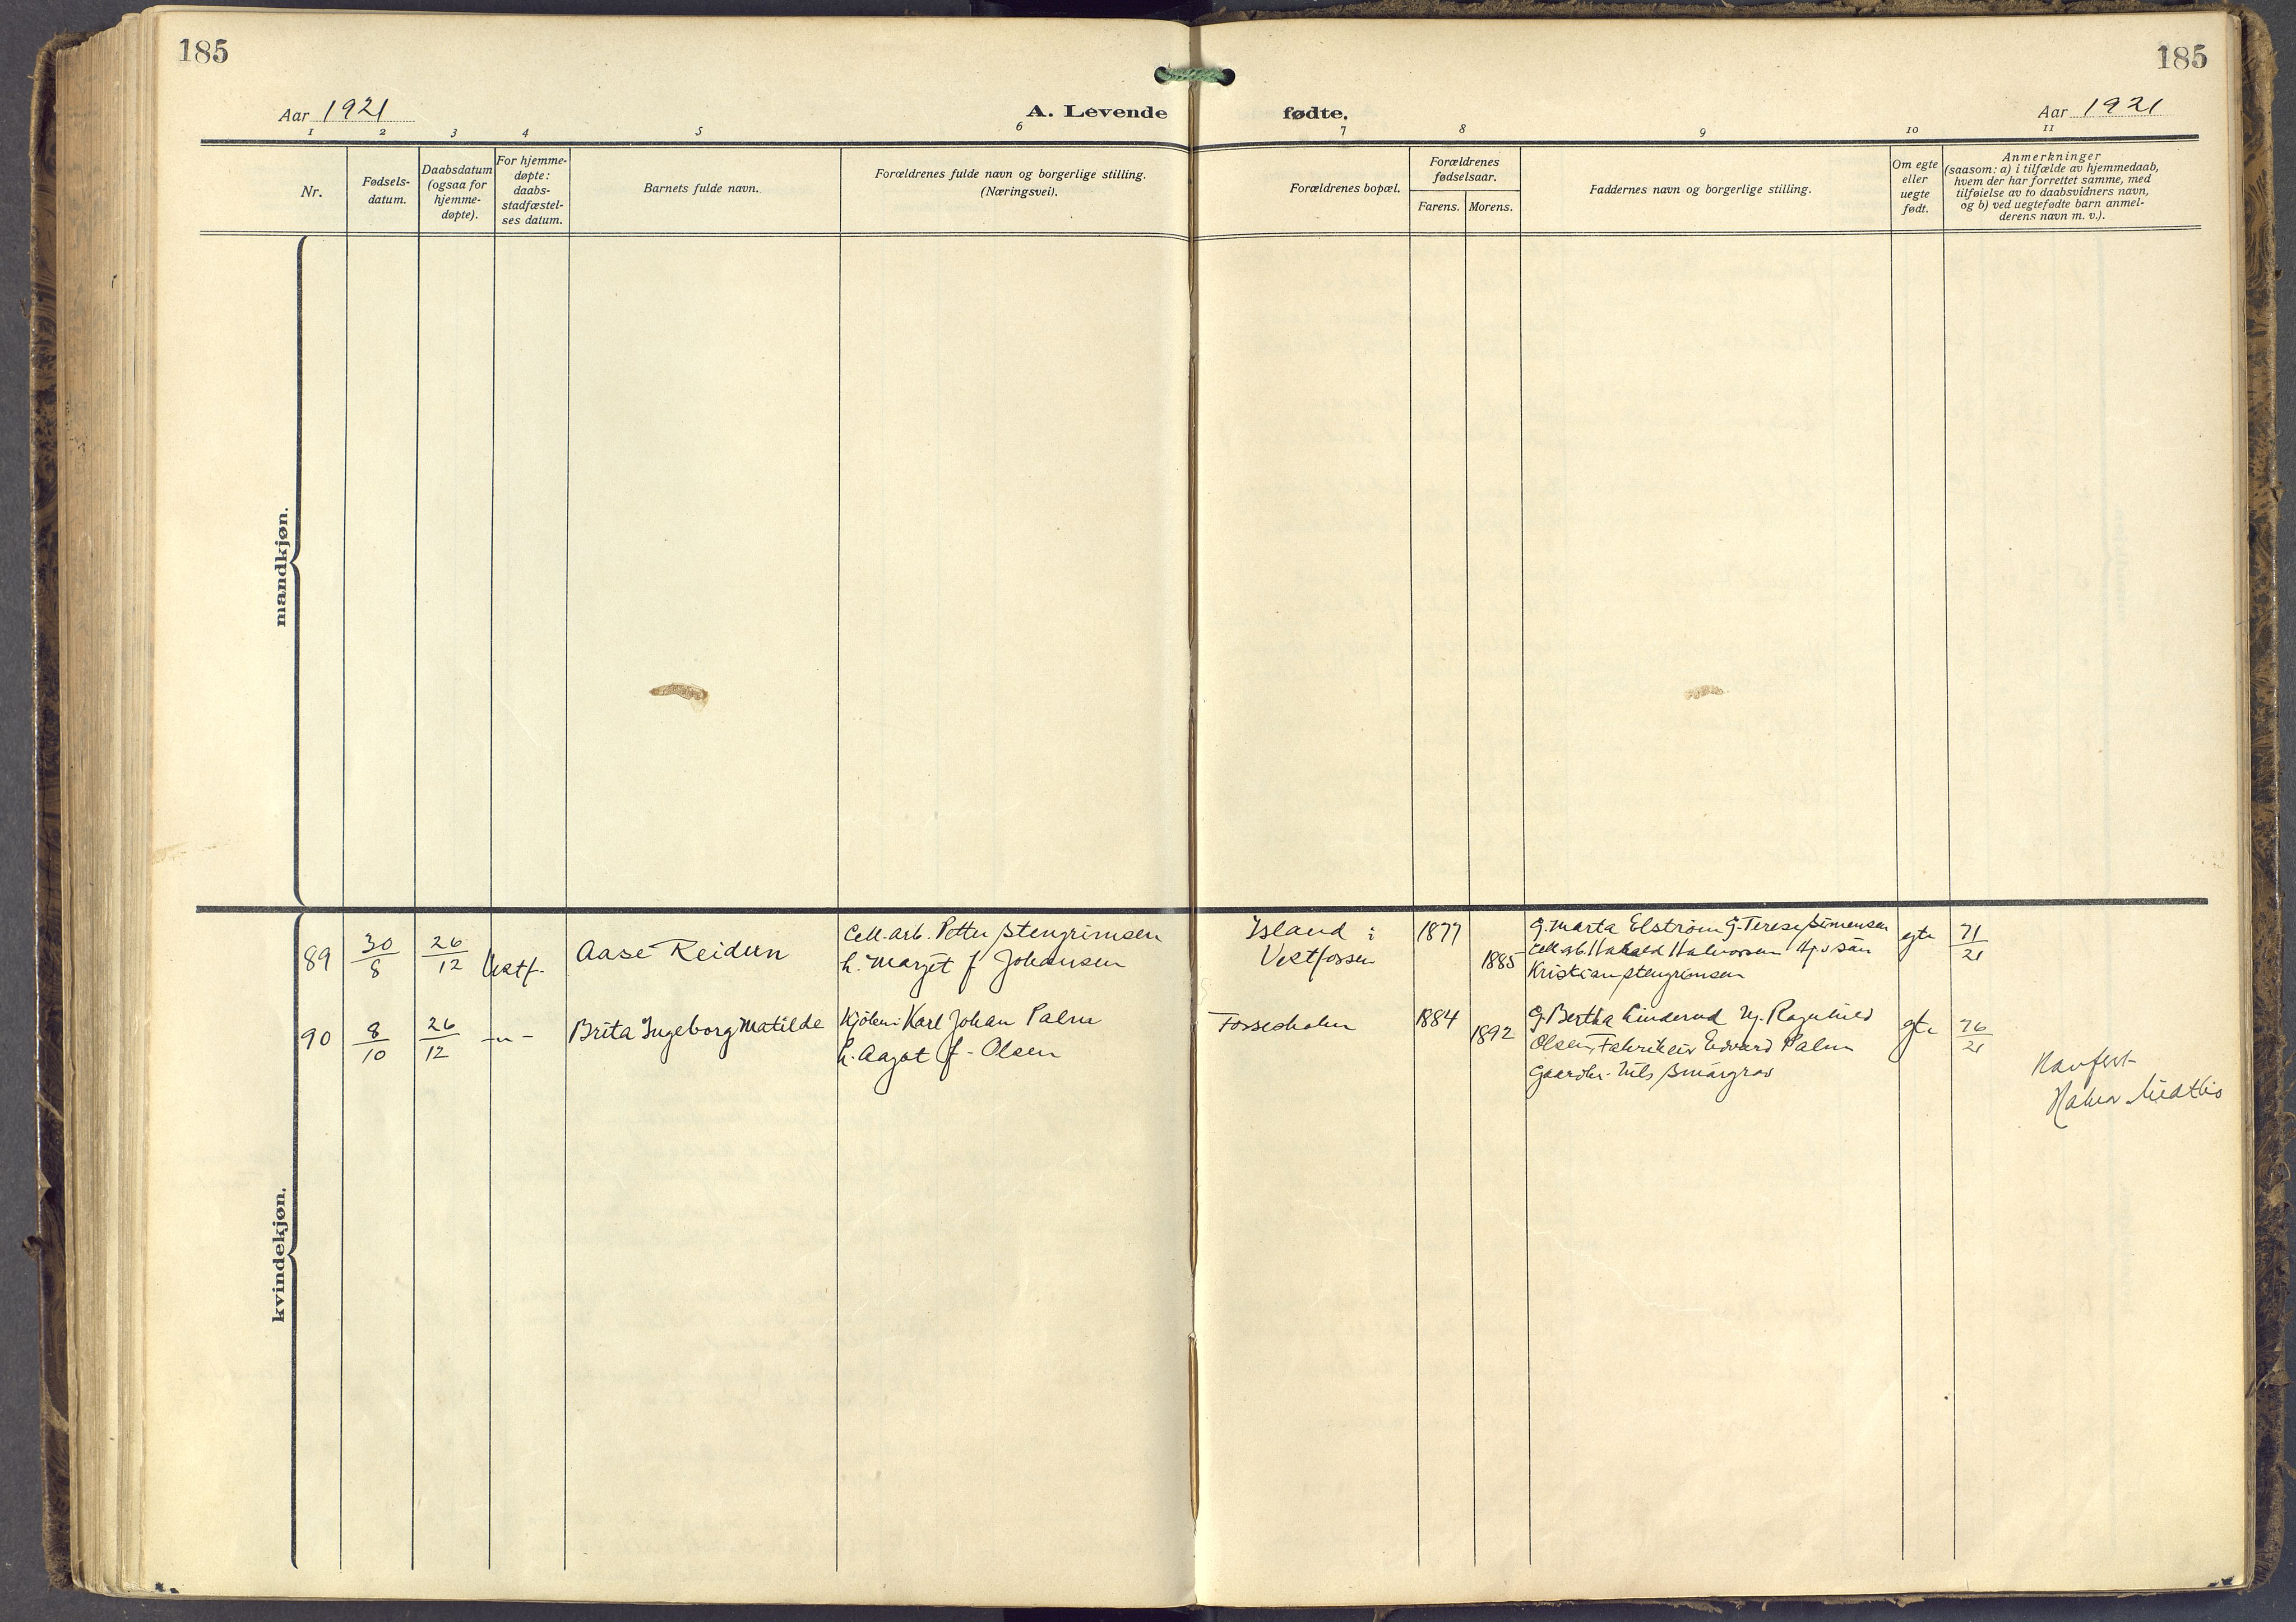 185
185
Aar 1921
A. Levende
fødte.
Aar 1921
1 2 3 4 5 6 7 8 9 10 11
Nr.
Fødsels-
datum.
Daabsdatum
(ogsaa for
hjemme-
døpte).
For hjemme-
døpte:
daabs-
stadfæstel-
ses datum.
Barnets fulde navn.
Forældrenes fulde navn og borgerlige stilling.
(Næringsvei).
Forældrenes bopæl.
Forældrenes
fødselsaar.
Farens. Morens.
Faddernes navn og borgerlige stilling.
Om egte
eller
uegte
født.
Anmerkninger
(saasom: a) i tilfælde av hjemmedaab,
hvem der har forrettet samme, med
tilføielse av to daabsvidners navn,
og b) ved uegtefødte barn anmel-
derens navn m. v.).
mandkjøn.
kvindekjøn.
89
30/8
26/12
Vestf.
Aase Reidun
Cell. arb. Petter Stengrimsen
h. Margit f. Johansen
Island i
Vestfossen
1877
1885
G. Marta Elstrøm G. Terese Simensen
Cell. arb. Harald Halvorsen
Kristian Stengrimsen
egte
71/21
90
8/10
26/12
-"-
Brita Ingeborg Matilde
Karl Johan Palm
h. Aagot f. Olsen
Fossesholm
1884
1892
G. Bertha Linderud Ug. Ragnhild
Olsen, Edvard Palm
Gaardbr. Nils Smørgrav
egte
76/21